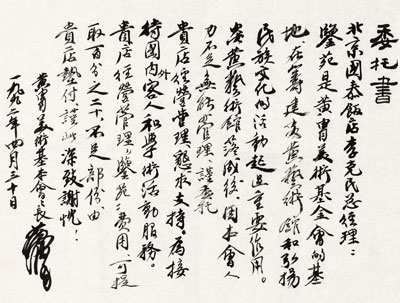 委托書
北京国泰飯店李克民总经理：
鑒苑是黄胄美術基金会的基
地、在籌建炎黄藝術館和弘扬
民族文化的活动起过重要作用。
炎黄藝術館落成後、因本会人
力不足無能管理、謹委托
貴店経營管理懇求支持。為接
待國内外客人和學術活動服務。
貴店経營管理、鑒苑之費用、可提
取百分之二十、不足部份、由
貴店墊付謹此深致謝忱！
黄胄美術基本會會長
一九九二年四月三十日